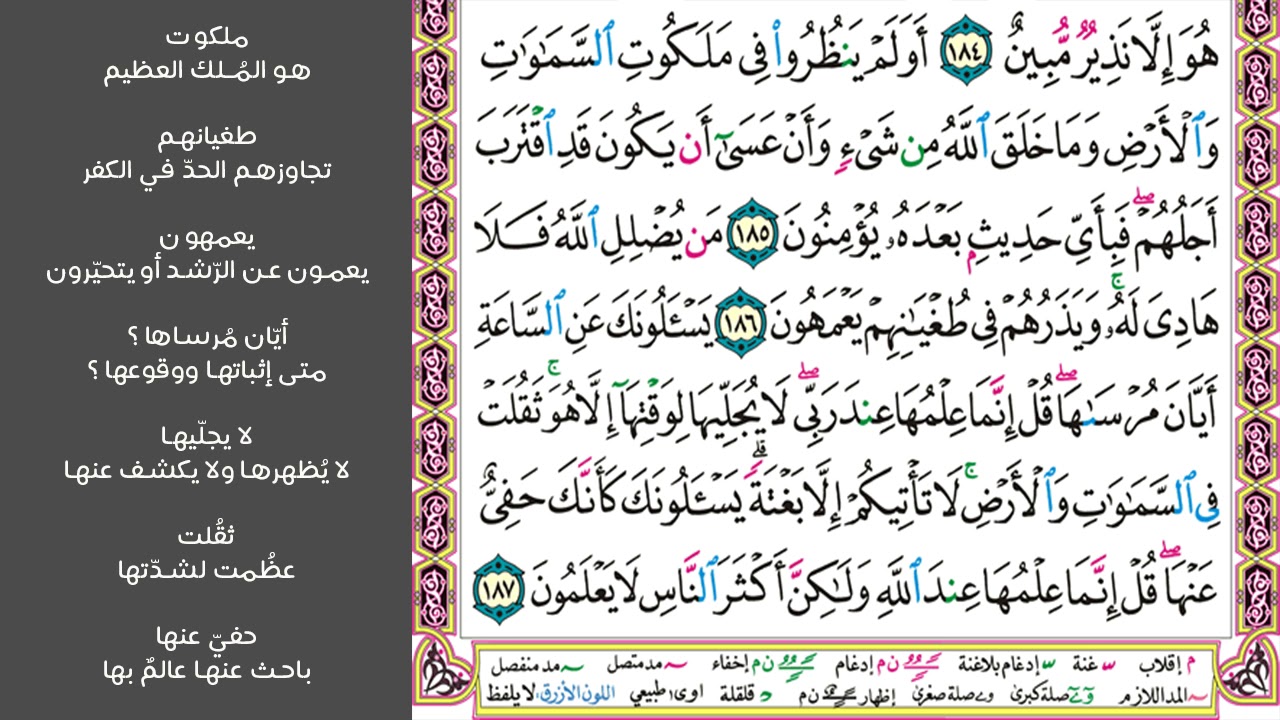 ملكوت
هو المُلك العظيم
طغيانهم
تجاوزهم الحدّ في الكفر
يعمهون
يعمون عن الرّشد أو يتحيّرون
أيّان مُرساها ؟
متى إثباتها ووقوعها ؟
لا يجلّيها
لا يُظهرها ولا يكشف عنها
ثقُلت
عظُمت لشدّتها
حفيّ عنها
باحث عنها عالمٌ بها
هُوَ إِلَّا نَذِيرٌ مُّبِينٌ ١٨٤ أَوَلَمْ يَنظُرُوا۟ فِى مَلَكُوتِ ٱلسَّمَـٰوَٰتِ
وَٱلْأَرْضِ وَمَا خَلَقَ ٱللَّهُ مِن شَىْءٍ وَأَنْ عَسَىٰٓ أَن يَكُونَ قَدِ ٱقْتَرَبَ
أَجَلُهُمْ ۖ فَبِأَىِّ حَدِيثٍۭ بَعْدَهُۥ يُؤْمِنُونَ ١٨٥ مَن يُضْلِلِ ٱللَّهُ فَلَا
هَادِىَ لَهُۥ ۚ وَيَذَرُهُمْ فِى طُغْيَـٰنِهِمْ يَعْمَهُونَ ١٨٦ يَسْـَٔلُونَكَ عَنِ ٱلسَّاعَةِ
أَيَّانَ مُرْسَىٰهَا ۖ قُلْ إِنَّمَا عِلْمُهَا عِندَ رَبِّى ۖ لَا يُجَلِّيهَا لِوَقْتِهَآ إِلَّا هُوَ ۚ ثَقُلَتْ
فِى ٱلسَّمَـٰوَٰتِ وَٱلْأَرْضِ ۚ لَا تَأْتِيكُمْ إِلَّا بَغْتَةً ۗ يَسْـَٔلُونَكَ كَأَنَّكَ حَفِىٌّ
عَنْهَا ۖ قُلْ إِنَّمَا عِلْمُهَا عِندَ ٱللَّهِ وَلَـٰكِنَّ أَكْثَرَ ٱلنَّاسِ لَا يَعْلَمُونَ ١٨٧
م إقلاب غنة إدغام بلاغنة ن م إدغام ن م إخفاء مد متصل مد منفصل
المد اللازم صلة كبرى صلة صغرى إظهار ن م قلقلة اوى طبيعي اللون الأزرق: لا يلفظ